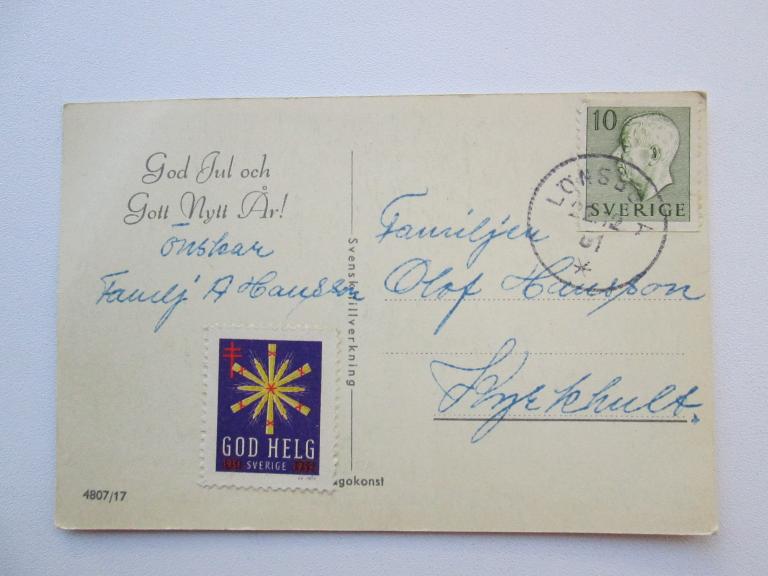 God Jul och
Gott Nytt År!
önskar
Familj A Hansson
4807/17
GOD HELG
SVERIGE
Svensk tillverkning
agokonst
10
SVERIGE
LÖNSBODA
61
Familjen
Olof Hansson
Kyrkhult.